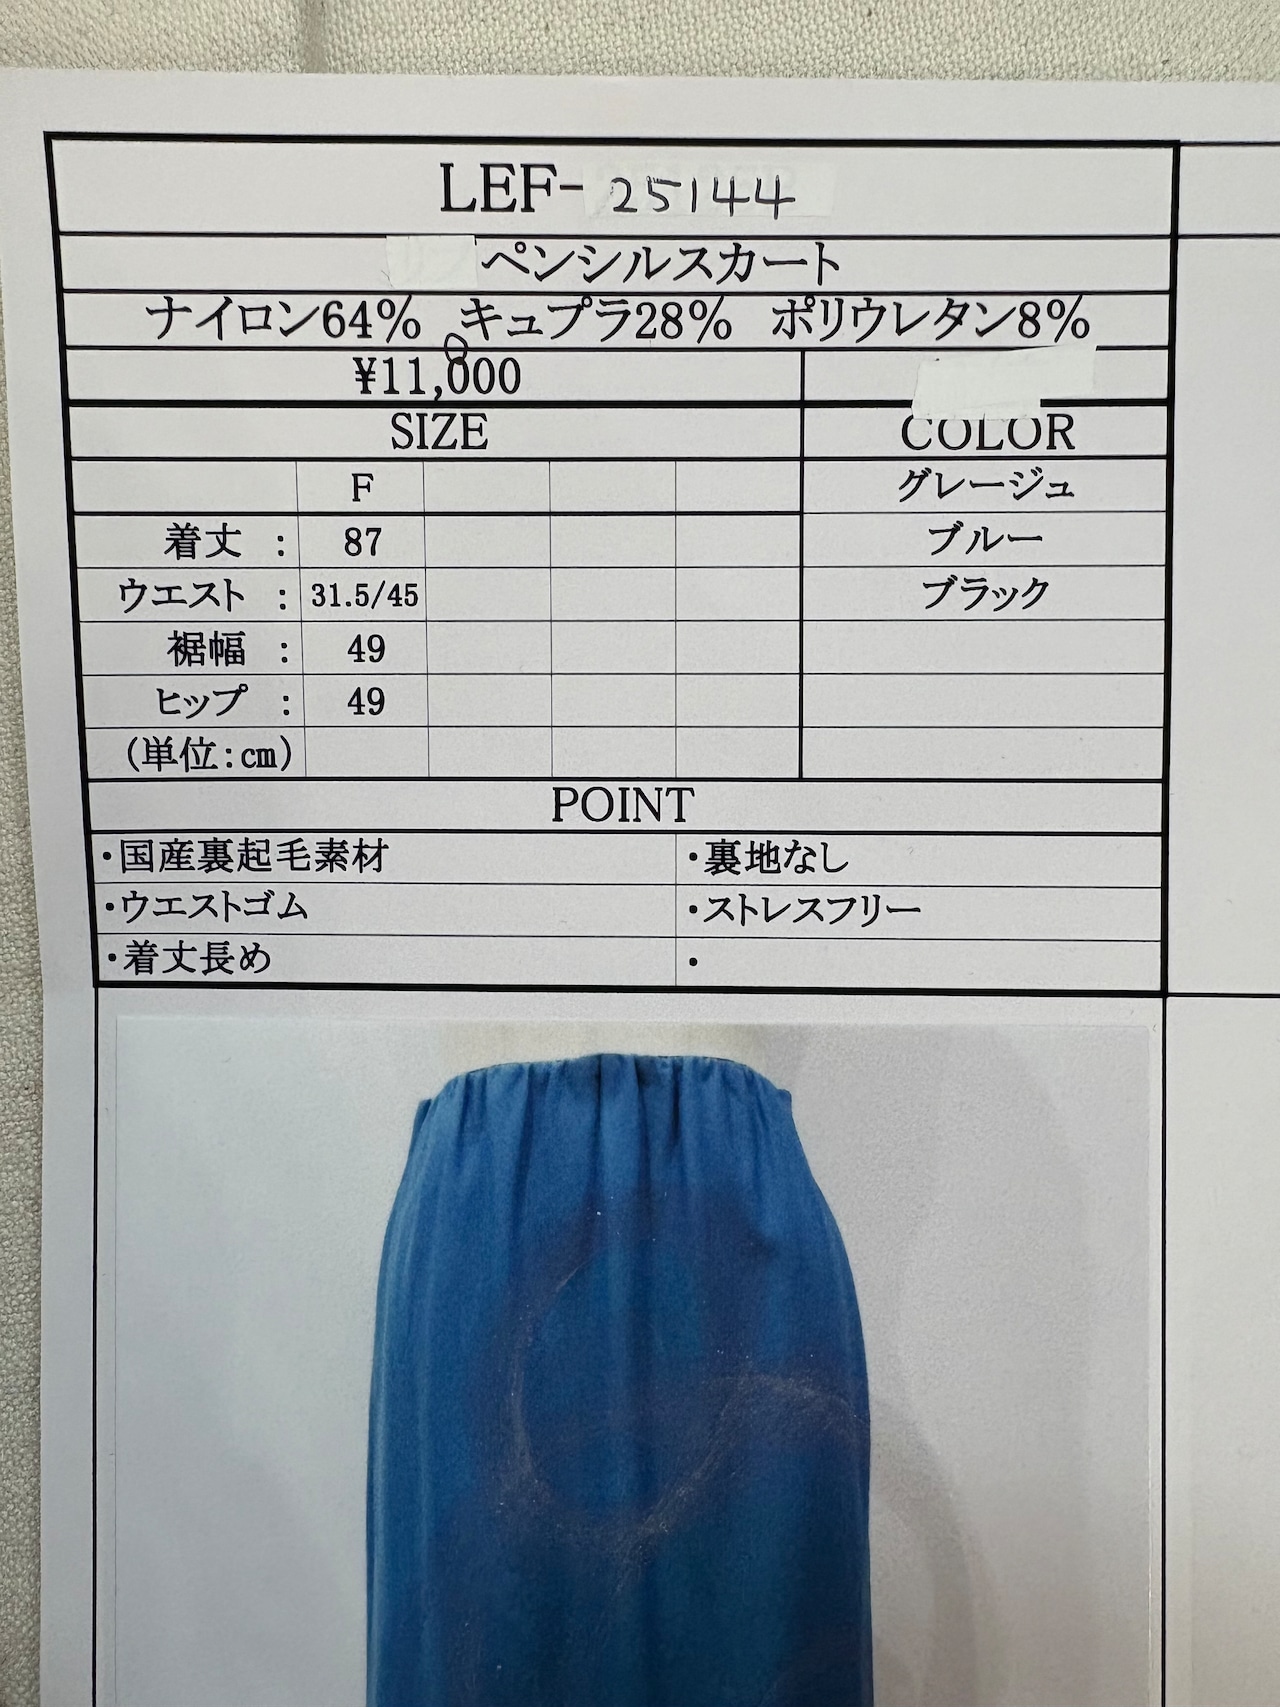 LEF-25144
ペンシルスカート
ナイロン64% キュプラ28% ポリウレタン8%
¥11,000
SIZE COLOR
F グレージュ
着丈 : 87 ブルー
ウエスト : 31.5/45 ブラック
裾幅 : 49
ヒップ : 49
(単位:cm)
POINT
・国産裏起毛素材 ・裏地なし
・ウエストゴム ・ストレスフリー
・着丈長め ・